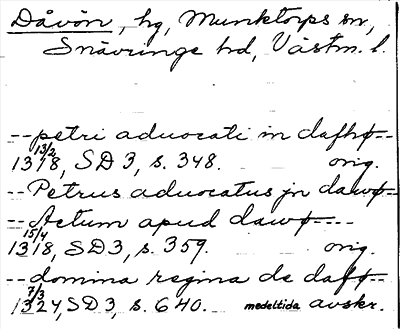 Dåvön, hg, Munktorps sn,
Snävringe hd, Västm. l.
--petri aduocati in dafhø--
13/2
1318, SD 3, s. 348. orig.
--Petrus aduocatus jn dawø--
--Actum apud dawø----
15/4
1318, SD3, s. 359. orig.
--domina regina de dafø--
7/3
1324, SD3, s. 640. medeltida avskr.